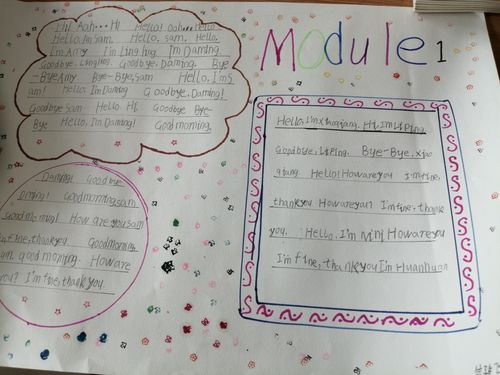 Module 1
Hi! Aah... Hi Hello! Ooh... Hello.
Hello, I'm Sam. Hello, Sam. Hello,
I'm Amy I'm Lingling I'm Daming.
Goodbye, Lingling. Goodbye, Daming. Bye
-Bye Amy Bye-Bye, Sam Hello, I'm S
am! Hello I'm Daming Goodbye, Daming!
Goodbye Sam Hello Hi Goodbye Bye-
Bye Hello, I'm Daming! Good morning,
Daming! Goodbye
Good morning, Sam
Good morning! How are you, Sam
I'm fine, thank you. Good morning
good morning. How are
you? I'm fine, thank you.
Hello, I'm Xiaoqiang. Hi, I'm Liping.
Goodbye, Liping. Bye-Bye, Xiao
qiang. Hello! How are you I'm fine,
thank you How are you? I'm fine, thank
you. Hello, I'm Minj How are you
I'm fine, thank you I'm Huanhuan